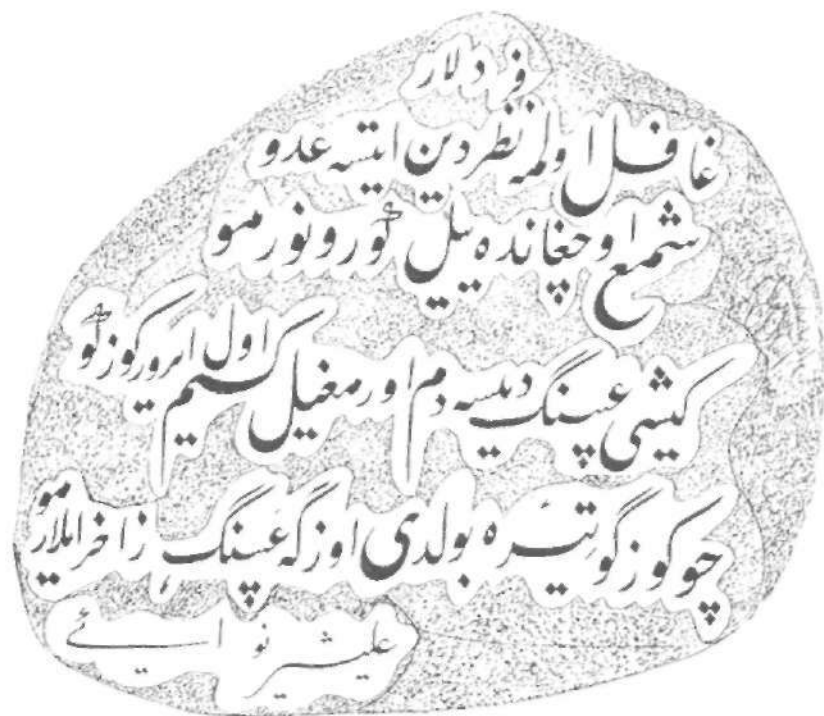 فردلار
غافل اولمه نظردین ایتسه عدو
شمع اوچغانده ییل کورونورمو
کیشی عیبنگ دیسه دم اورمغیل کیم اول ایرور کوزگو
چو کوزگو تیره بولدی اوزگه عیبنگ ایلارمو
علیشیر نوائے